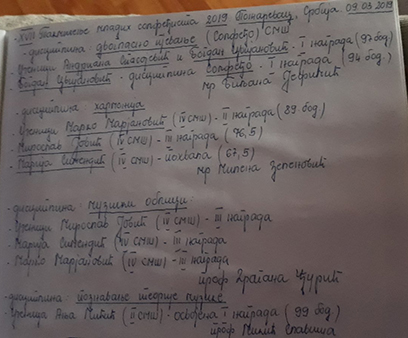 -XVIII Такмичење младих солфеђиста 2019 Пожаревац, Србија 09.03.2019
- дисциплина двогласно певање (Солфеђо) СМШ
- Ученици Андријана и Богдан Цвијановић - I награда (97 бод)
- Богдан Цвијановић - дисциплина Солфеђо - I награда (94 бод.)
мр Биљана
- дисциплина: хармонија
Ученици Марко Марјановић (IV СМШ) - II награда (89 бод.)
- Мирослав Јовић (IV СМШ) - III награда (76,5)
- Марија (IV СМШ) - похвала (67,5)
мр Милена
- дисциплина: музички облици:
Ученици Мирослав Јовић (IV СМШ) - III награда
- Марија (IV СМШ) - III награда
- Марко Марјановић (IV СМШ) - III награда
проф Драгана Ђурић
- дисциплина: познавање теорије музике
- Ученица Ања Митић (II СМШ) - освојена I награда (99 бод.)
проф Милић Славиша